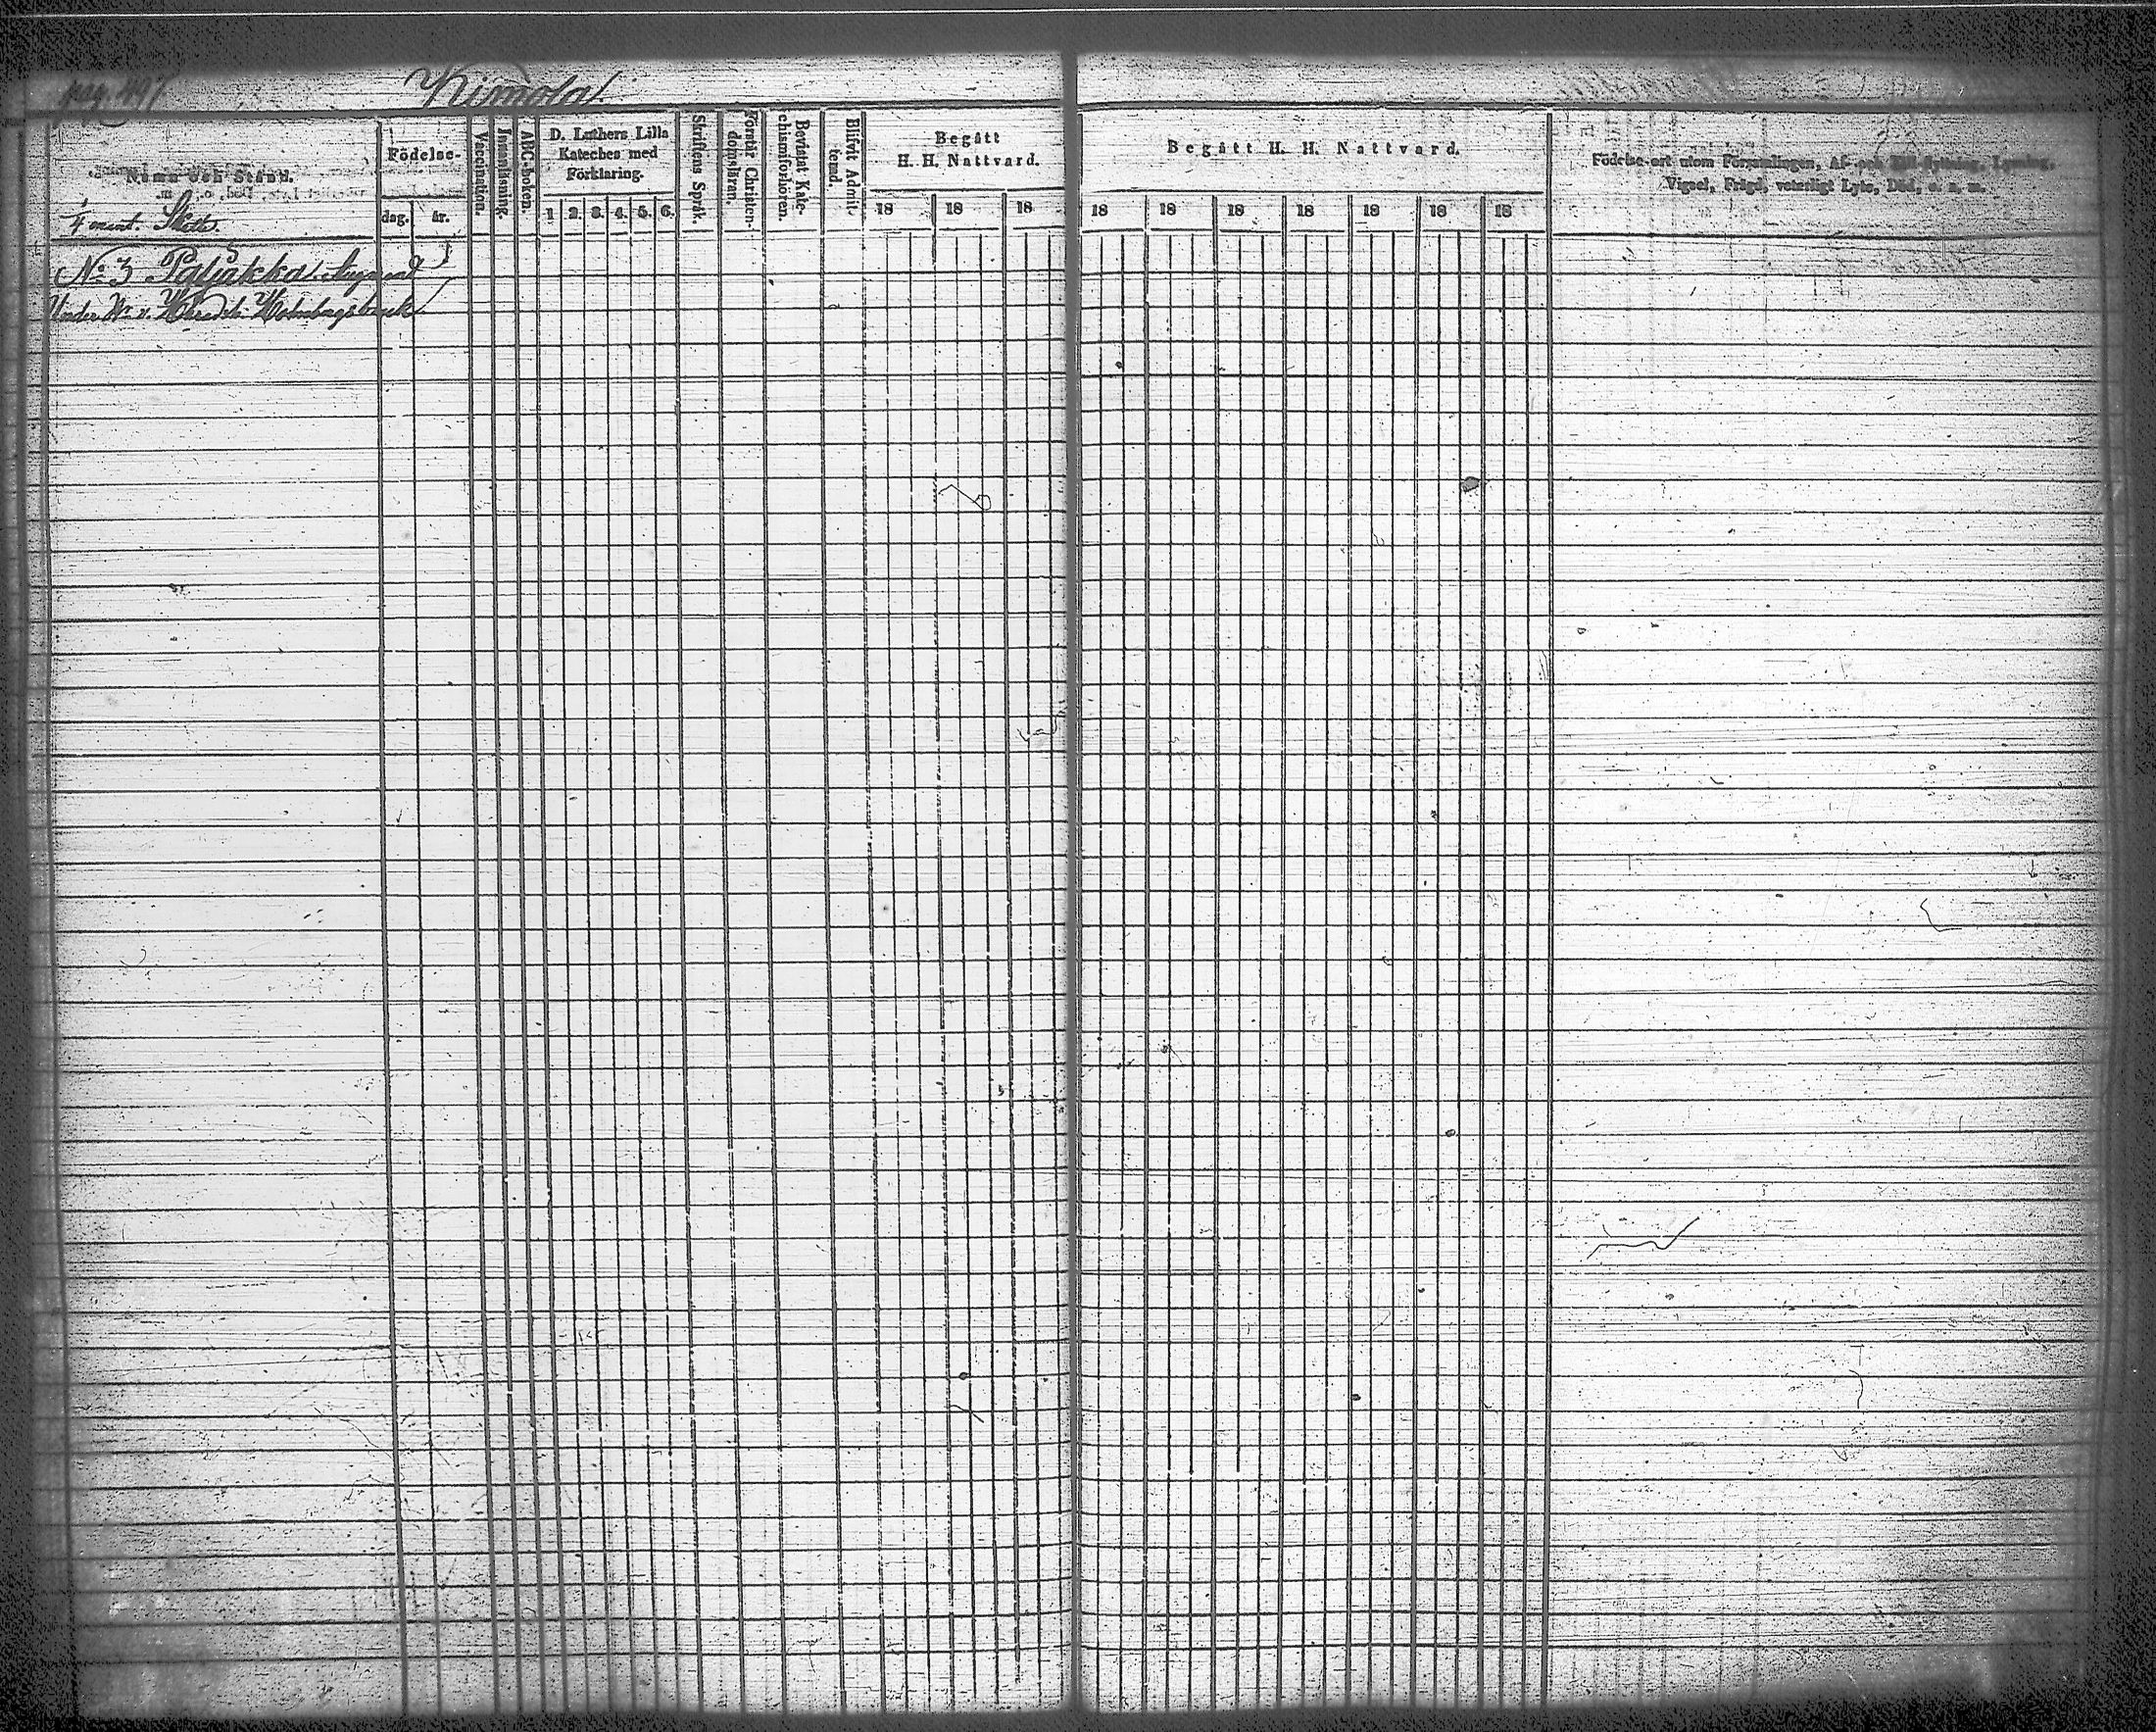 pag. 497
Kimola.
Namn och Stånd.
Födelse-
dag. år.
Vaccination.
Innanläsning.
ABC-boken.
D. Luthers Lilla
Kateches med
Förklaring.
1 2. 3. 4. 5. 6.
Skriftens Språk.
Förstår Christen-
domsläran.
Bevistat Kate-
chismiförhören.
Blifvit Admit-
terad.
Begått
H. H. Nattvard.
18 18 18
Begått H. H. Nattvard.
18 18 18 18 18 18 18
Födelse-ort utom Församlingen, Af- och Till-flyttning, Lysning,
Vigsel, Frägd, veterligt Lyte, Död, o. s. m.
No 3 Paljakka
Under No